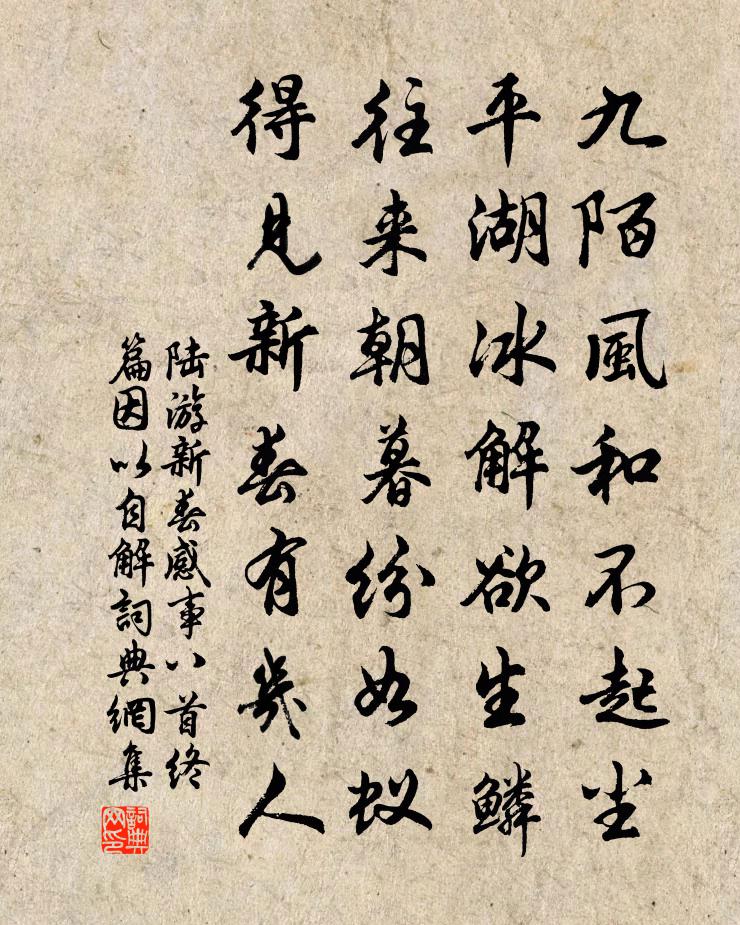 九陌風和不起尘
平湖冰解欲生鳞
往来朝暮纷如蚁
得见新春有几人
陆游新春感事八首终
篇因以自解詞典網集
詞典网印